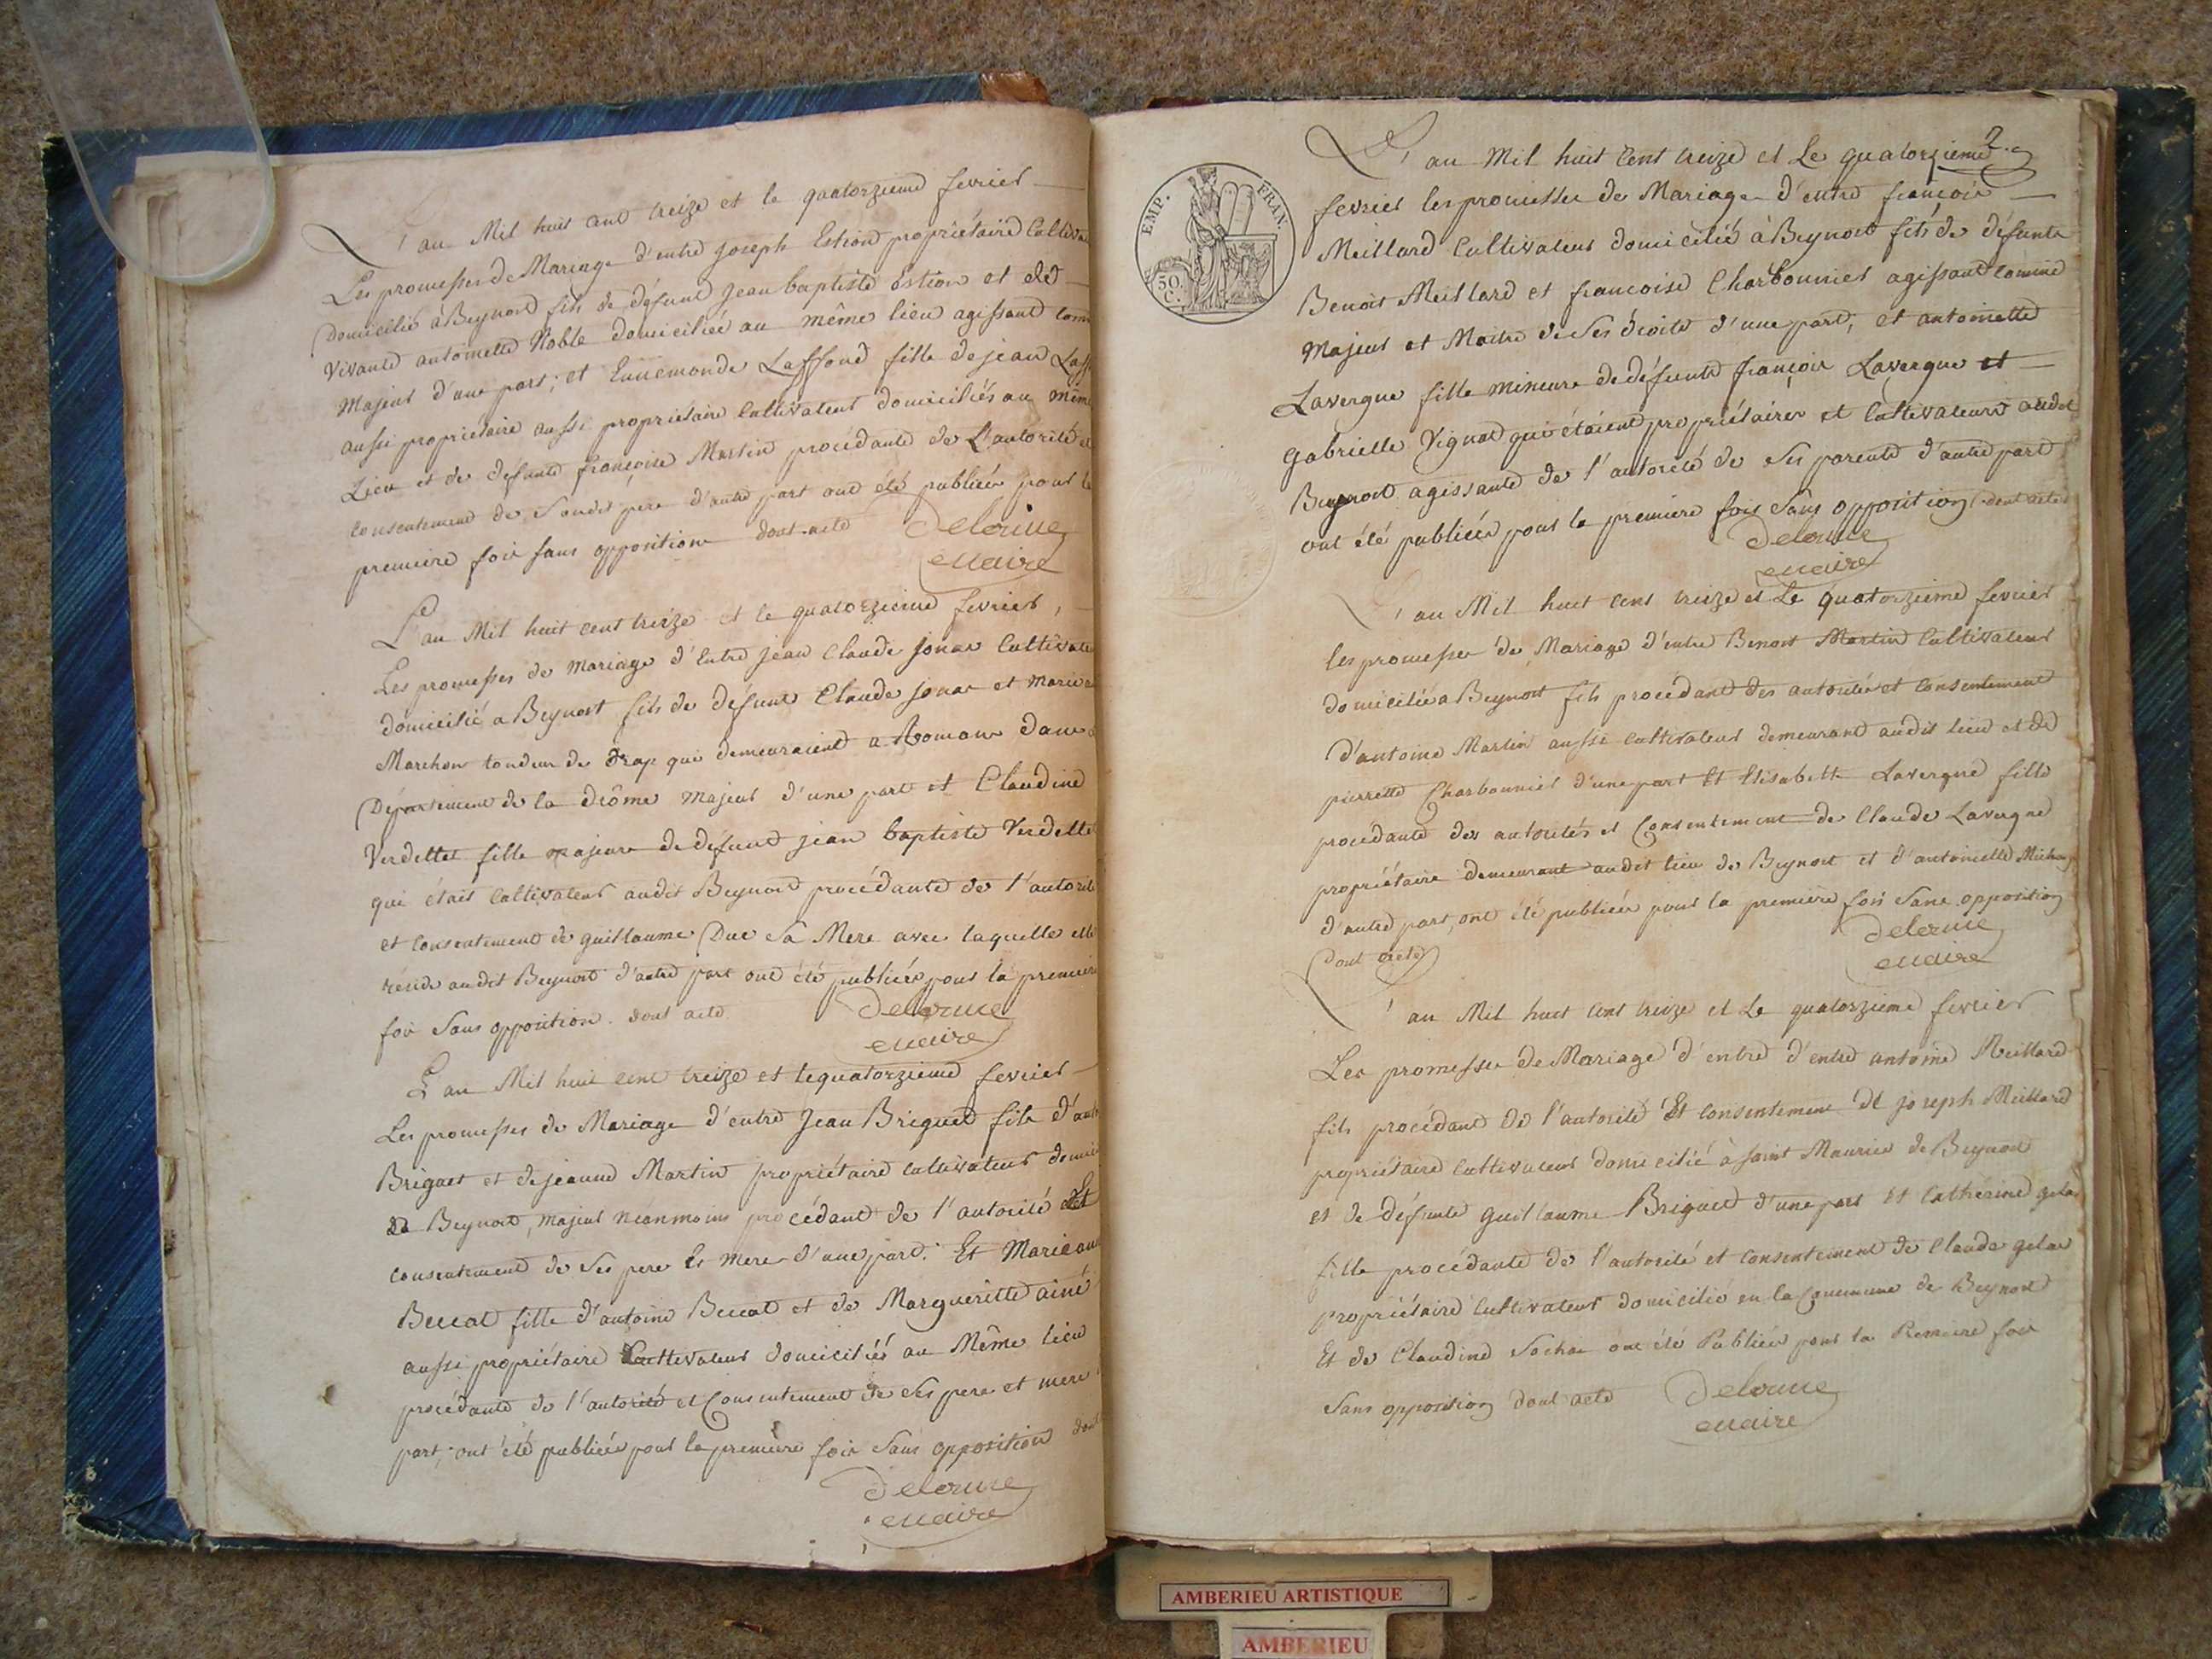 L'an Mil huit cent treize et le quatorzieme fevrier
Les promesses de Mariage d'entre joseph Estion propriétaire Cultiva
Domicilié a Beynost fils de défunt Jean baptiste Estion et de
Vivante antoinette Noble domiciliée au même lieu agissant com
Majeur d'une part; et Ennemonde Laffond fille de jean Laff
aussi propriétaire aussi propriétaire Cultivateur domiciliés au même
Lieu et de défunte françoise Martin procédante de L'autorité et
consentement de Son dit pere d'autre part ont été publiées pour la
premiere fois sans opposition dont acte Delorme
Maire
L'an Mil huit cent treize et le quatorzieme fevrier,
Les promesses de mariage d'Entre jean Claude jonas Cultivate
domicilié a Beynost fils de défunt Claude jonas et marie
Marchon tondeur de Drap qui demeuraient a Romans dans
Département de la drôme Majeur d'une part et Claudine
Verdellet fille majeure de défunt jean baptiste Verdellet
qui était Cultivateur audit Beynost procédante de l'autorité
et consentement de guillaume Duc Sa Mere avec laquelle elle
réside audit Beynost d'autre part ont été publiées pour la premiere
fois Sans opposition. dont acte Delorme
Maire
L'an Mil huit cent treize et le quatorzieme fevrier
Les promesses de Mariage d'entre Jean Briguet fils d'ant
Briguet et de jeanne Martin propriétaire cultivateur domici
Beynost, majeur néanmoins procédant de l'autorité Et
consentement de Ses pere Et mere d'une part. Et Marie an
Beccat fille d'antoine Beccat et de Margueritte ainé
aussi propriétaire Cultivateur domiciliés au Même lieu
procédante de l'autorité et Consentement de Ses pere et mere
part, ont été publiées pour la premiere fois Sans opposition dont
Delorme
Maire
2.
L'an Mil huit Cent treize et Le quatorzieme
fevrier les promesses de Mariage d'entre françois
Meillard Cultivateur domicilié à Beynost fils de défunts
Benoit Meillard et francoise Charbonnier agissant comme
Majeur et Maitre de Ses droits d'une part, et antoinette
Lavergne fille mineure de défunts françois Lavergne et
gabrielle Vignat qui étaient propriétaires et Cultivateurs audit
Beynost agissante de l'autorité de Ses parents d'autre part
ont été publiées pour la premiere fois Sans opposition dont acte
Delorme
Maire
L'an Mil huit Cent treize et Le quatorzieme fevrier
les promesses de Mariage d'entre Benoit Martin Cultivateur
domicilié a Beynost fils procédant des autorités et Consentement
d'antoine Martin aussi cultivateur demeurant audit lieu et de
pierrette Charbonnier d'une part Et Elisabeth Lavergne fille
procédante des autorités et Consentement de Claude Lavergne
propriétaire demeurant audit lieu de Beynost et d'antoinette
d'autre part, ont été publiées pour la premiere fois Sans opposition
Dont acte Delorme
Maire
L'an Mil huit Cent treize et Le quatorzieme fevrier
Les promesses de Mariage d'entre d'entre antoine Meillard
fils procédant de l'autorité Et consentement de joseph Meillard
propriétaire Cultivateur domicilié à saint Maurice de Beynost
et de défunte guillaume Briguet d'une part Et Cathérine gelas
fille procédante de l'autorité et consentement de Claude gelas
propriétaire Cultivateur domicilié en la Commune de Beynost
Et de Claudine Sochas ont été Publiées pour la Premiere fois
Sans opposition dont acte Delorme
Maire
EMP. FRAN.
50 C.
AMBERIEU ARTISTIQUE
AMBERIEU